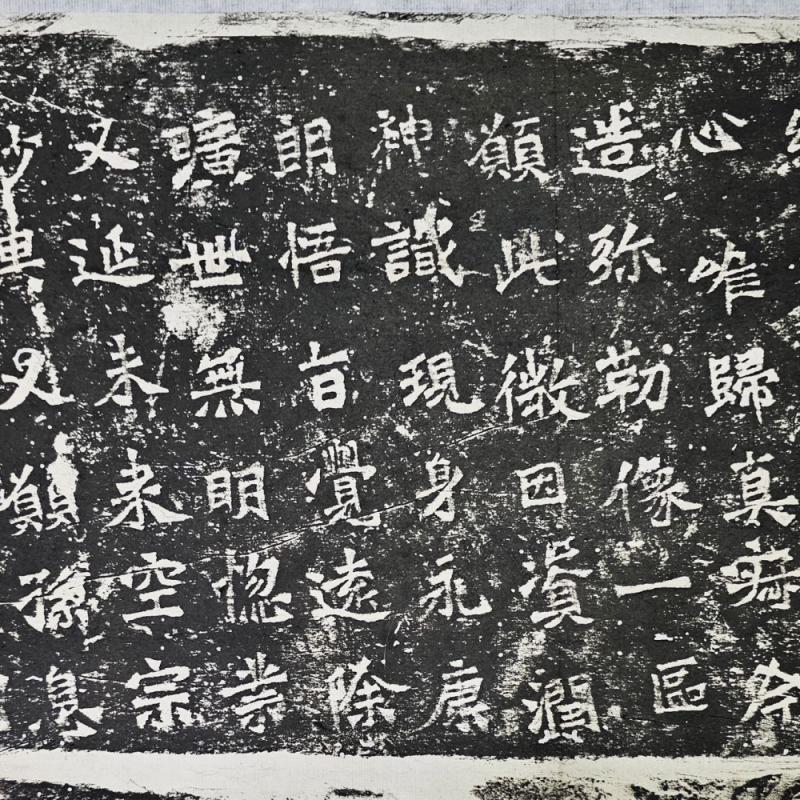 心唯歸真
造弥勒像一區
願此微因資潤
神識現身永康
朗悟旨覺遠除
曠世無明惚業
又延未来空宗
又願孫息